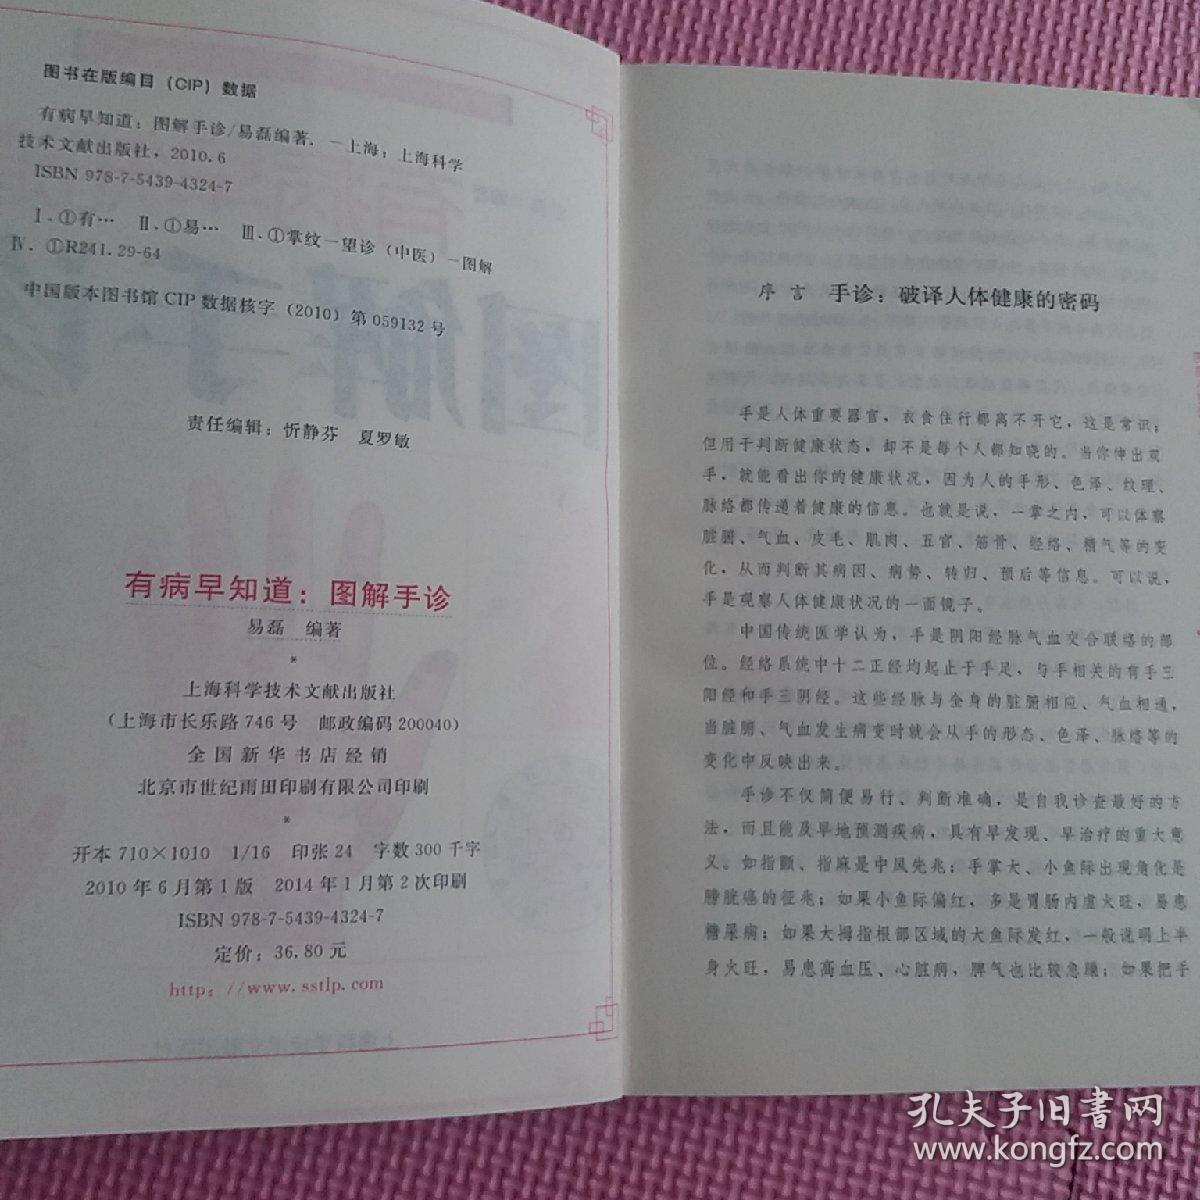 图书在版编目（CIP）数据
有病早知道：图解手诊/易磊编著．－上海：上海科学
技术文献出版社，2010.6
ISBN 978-7-5439-4324-7
Ⅰ.①有… Ⅱ.①易… Ⅲ.①掌纹－望诊（中医）－图解
Ⅳ.①R241.29-64
中国版本图书馆CIP数据核字（2010）第059132号
责任编辑：忻静芬 夏罗敏
有病早知道：图解手诊
易磊 编著
*
上海科学技术文献出版社
（上海市长乐路746号 邮政编码200040）
全国新华书店经销
北京市世纪雨田印刷有限公司印刷
*
开本710×1010 1/16 印张24 字数300千字
2010年6月第1版 2014年1月第2次印刷
ISBN 978-7-5439-4324-7
定价：36.80元
http：//www.sstlp.com
序言 手诊：破译人体健康的密码
手是人体重要器官，衣食住行都离不开它，这是常识；
但用于判断健康状态，却不是每个人都知晓的。当你伸出双
手，就能看出你的健康状况，因为人的手形、色泽、纹理、
脉络都传递着健康的信息。也就是说，一掌之内，可以体察
脏腑、气血、皮毛、肌肉、五官、筋骨、经络、精气等的变
化，从而判断其病因、病势、转归、预后等信息。可以说，
手是观察人体健康状况的一面镜子。
中国传统医学认为，手是阴阳经脉气血交合联络的部
位。经络系统中十二正经均起止于手足，与手相关的有手三
阳经和手三阴经。这些经脉与全身的脏腑相应、气血相通，
当脏腑、气血发生病变时就会从手的形态、色泽、脉络等的
变化中反映出来。
手诊不仅简便易行、判断准确，是自我诊查最好的方
法，而且能及早地预测疾病，具有早发现、早治疗的重大意
义。如指颤、指麻是中风先兆；手掌大、小鱼际出现角化是
膀胱癌的征兆；如果小鱼际偏红，多是胃肠内虚火旺，易患
糖尿病；如果大拇指根部区域的大鱼际发红，一般说明上半
身火旺，易患高血压、心脏病，脾气也比较急躁；如果把手
孔夫子旧书网
www.kongfz.com